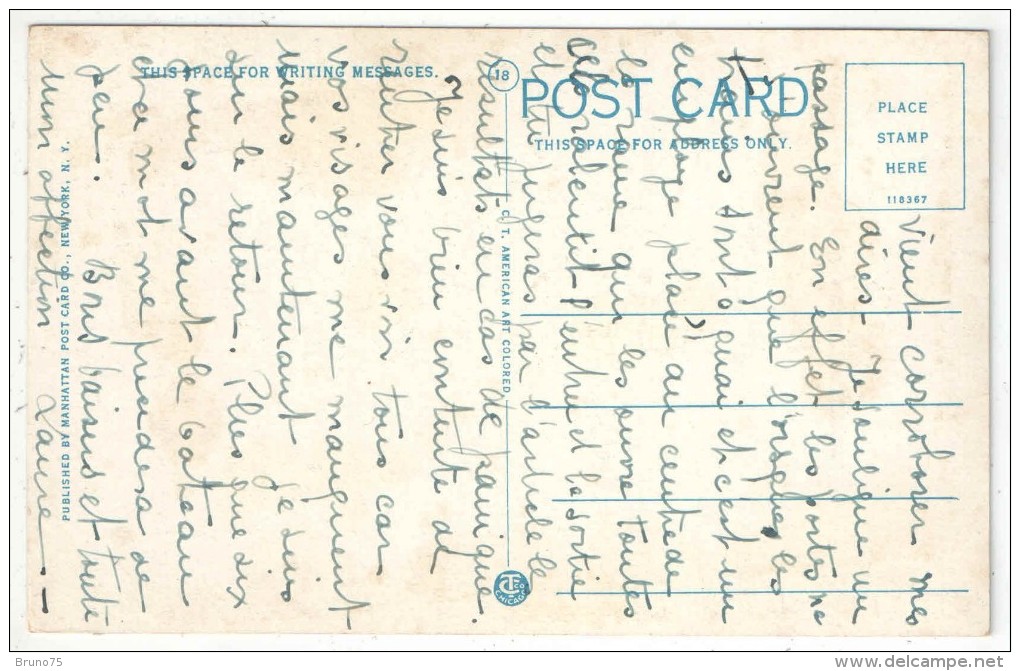 THIS SPACE FOR WRITING MESSAGES.
18
POST CARD
THIS SPACE FOR ADDRESS ONLY.
PLACE
STAMP
HERE
118367
PUBLISHED BY MANHATTAN POST CARD CO., NEW YORK, N. Y.
C. T. AMERICAN ART COLORED
CHICAGO
vient corroborer mes
dires. Je souligne un
passage. En effet les portes ne
s'ouvrent que lorsque les
trains sont à quai et c'est un
employé placé au centre de
la rame qui les ouvre toutes
cela ralentit l'entrée et la sortie
et tu jugeras par l'article le
résultat en cas de panique.
Je suis bien contente de
vous voir tous car
vos visages me manquent
mais maintenant je suis
sur le retour. Plus que six
jours avant le bateau
et à mot me prendra de
peu. Bons baisers et toute
mon affection Laure
Bruno75
delcampe.net